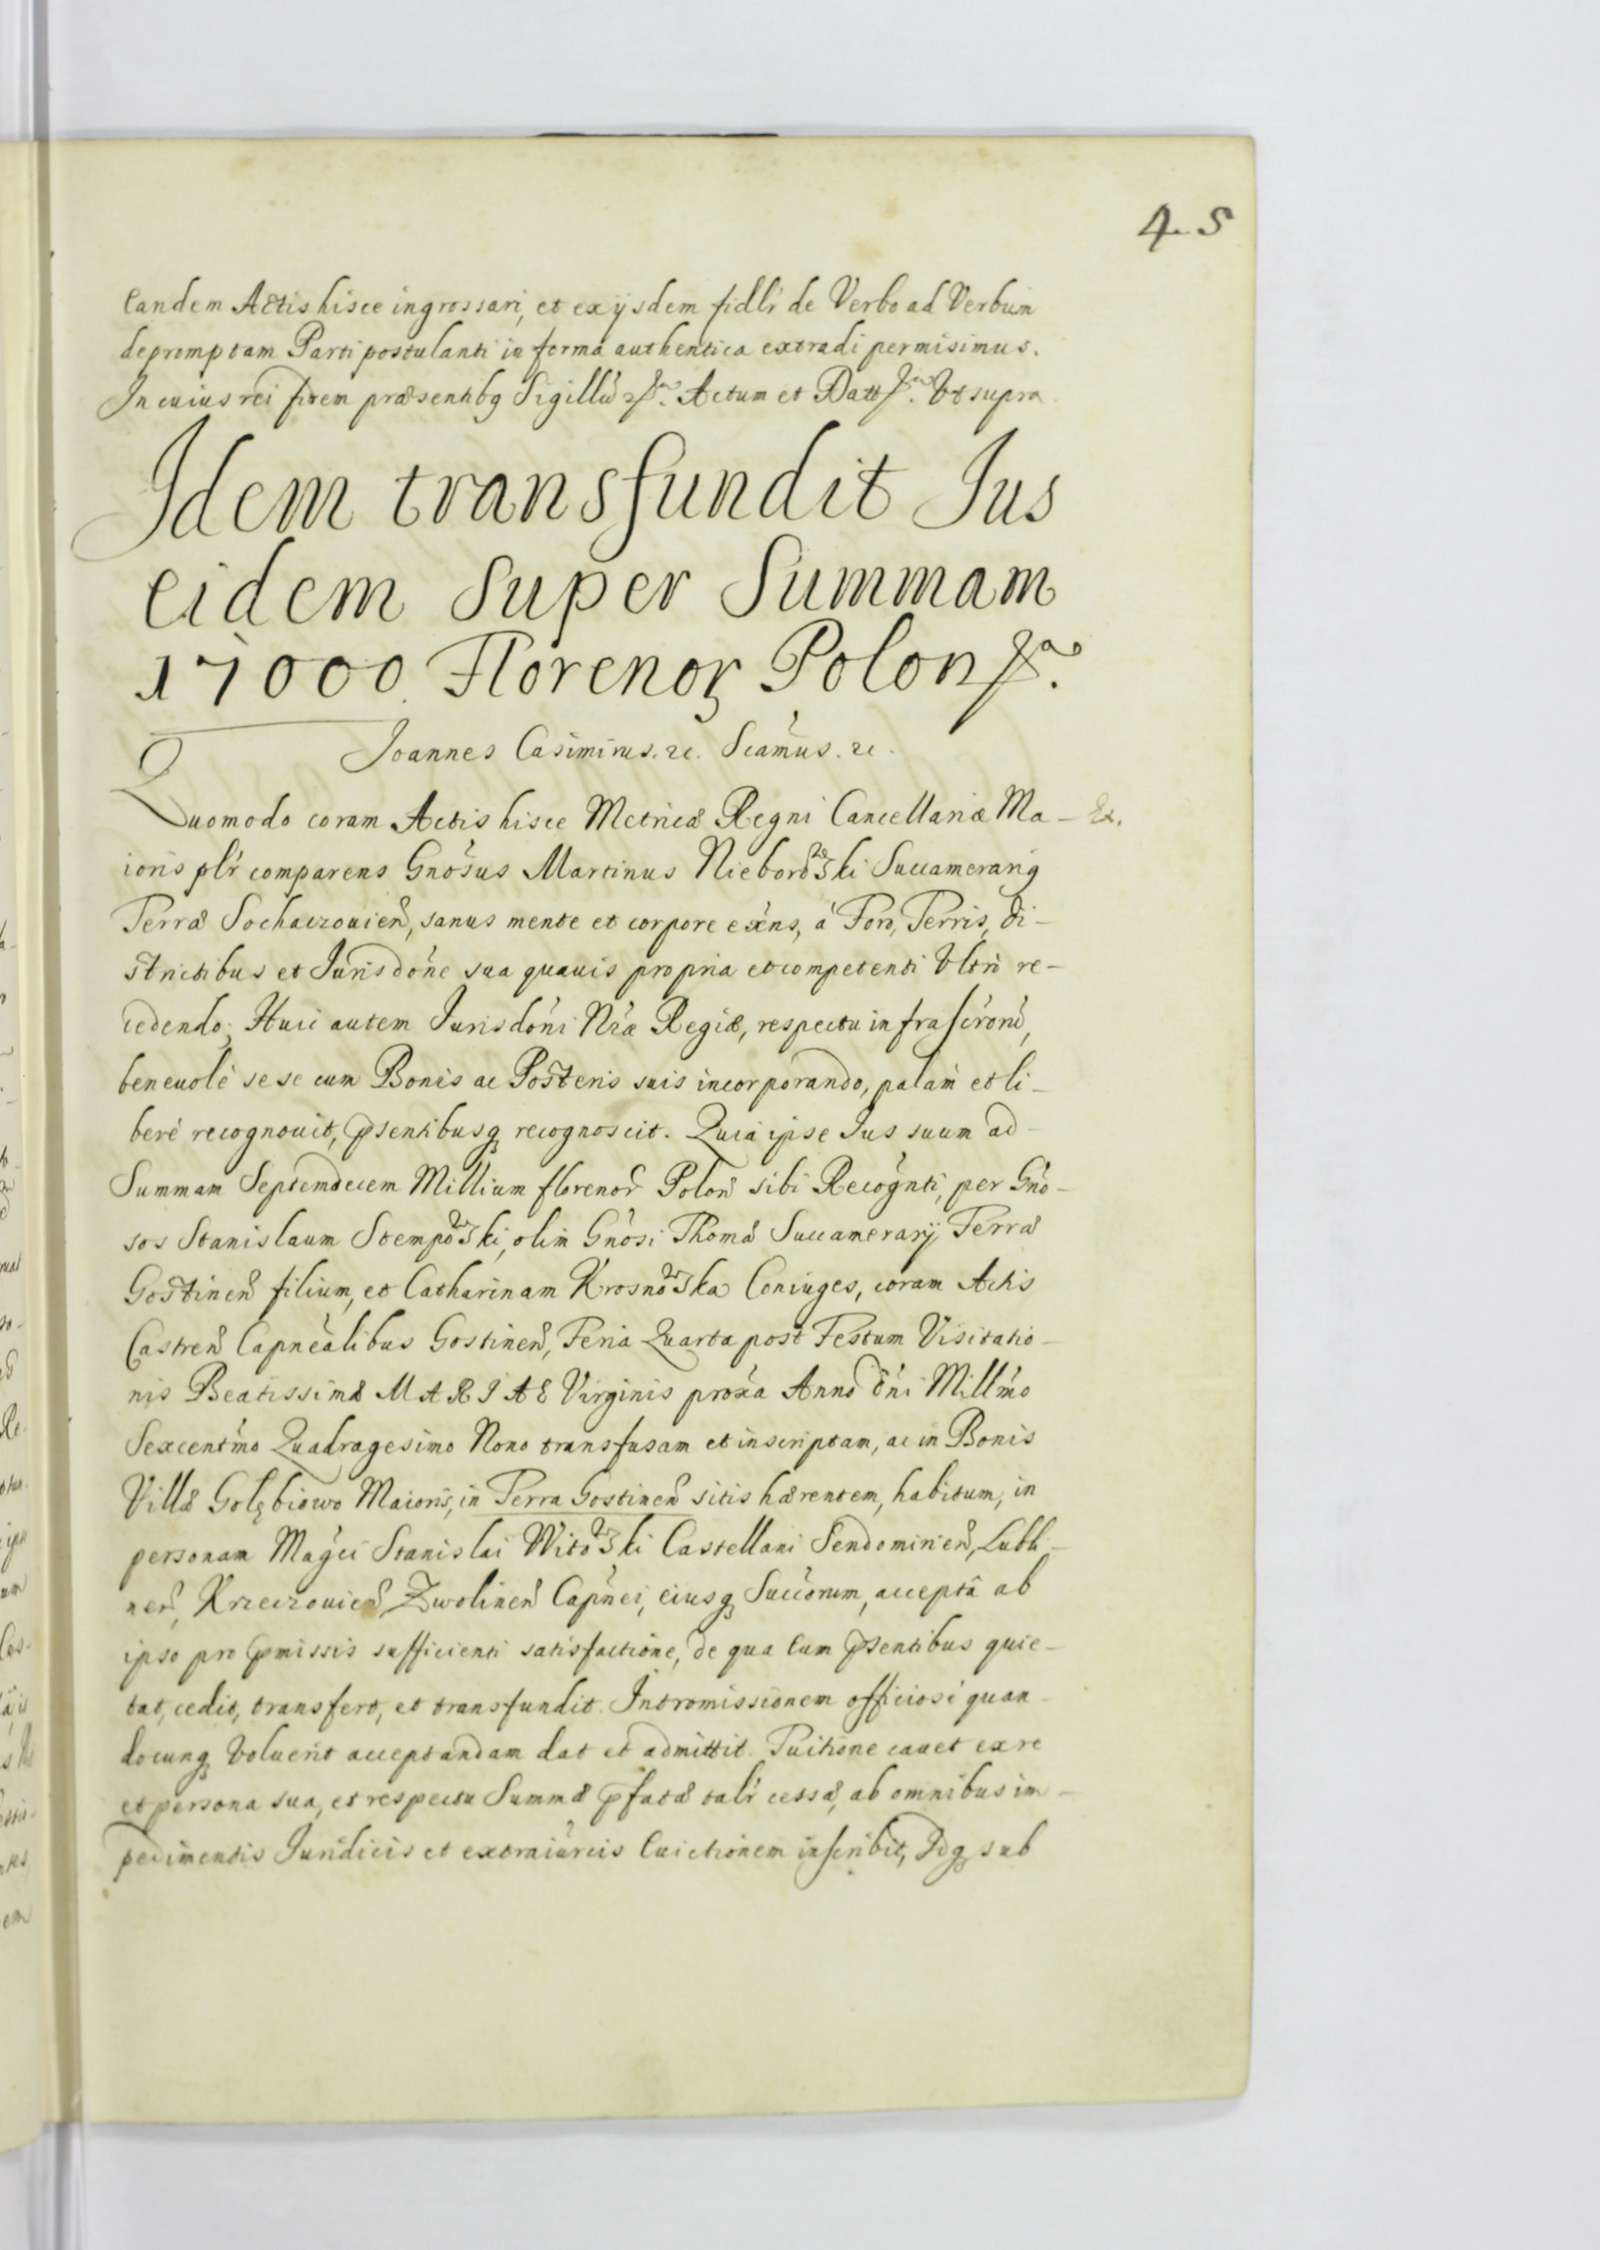 4. 5
Eandem Actis hisce ingrossari, et ex ijsdem fidlr de Verbo ad Verbum
depromptam Parti postulanti in forma authentica extradi permisimus.
In cuius rei fidem præsentibq Sigillũ &c. Actum et Datt &c. Vt supra
Idem transfundit Ius
eidem super Summam
17000 Florenoꝝ Polon &c.
Joannes Casimirus. &c. Seãmus. &c.
Quomodo coram Actis hisce Metricæ Regni Cancellariæ Ma- Ex.
ioris plr comparens Gnosus Martinus Nieborowski Succamerariq
Terræ Sochaczouien, sanus mente et corpore exns, á Foro, Terris, di-
strictibus et Jurisdone sua quauis propria et competenti Vltro re-
cedendo, Huic autem Jurisdoni Nræ Regiæ, respectu infrascrorũ,
beneuolé sese cum Bonis ac Posteris suis incorporando, palam et li-
beré recognouit, p̃sentibusq recognoscit. Quia ipse Jus suum ad
Summam Septemdecem Millium florenor Polon sibi Recognti, per Gno-
sos Stanislaum Stempowski, olim Gnosi Thomæ Succamerarij Terræ
Gostinen filium, et Catharinam Krosnowska Coniuges, coram Actis
Castren Capnealibus Gostinen, Feria Quarta post Festum Visitatio-
nis Beatissimæ MARIAE Virginis proxa Anno dni Millmo
Sexcentmo Quadragesimo Nono transfusam et inscriptam, ac in Bonis
Villæ Golębiowo Maioris, in Terra Gostinen sitis hærentem, habitum, in
personam Magci Stanislai Witowski Castellani Sendomirien, Lubli-
nen, Krzeczouien, Zwolinen Capnei, eiusq Succorum, acceptâ ab
ipso pro p̃missis sufficienti satisfactione, de qua Eum p̃sentibus quie-
tat, cedit, transfert, et transfundit. Intromissionem officiosé quan-
docunq Voluerit acceptandam dat et admittit. Tuitione cauet ex re
et persona sua, et respectu Summæ p̃fatæ talr cessæ, ab omnibus im-
pedimentis Juridicis et extraiurcis Euictionem inscribit, Idq sub